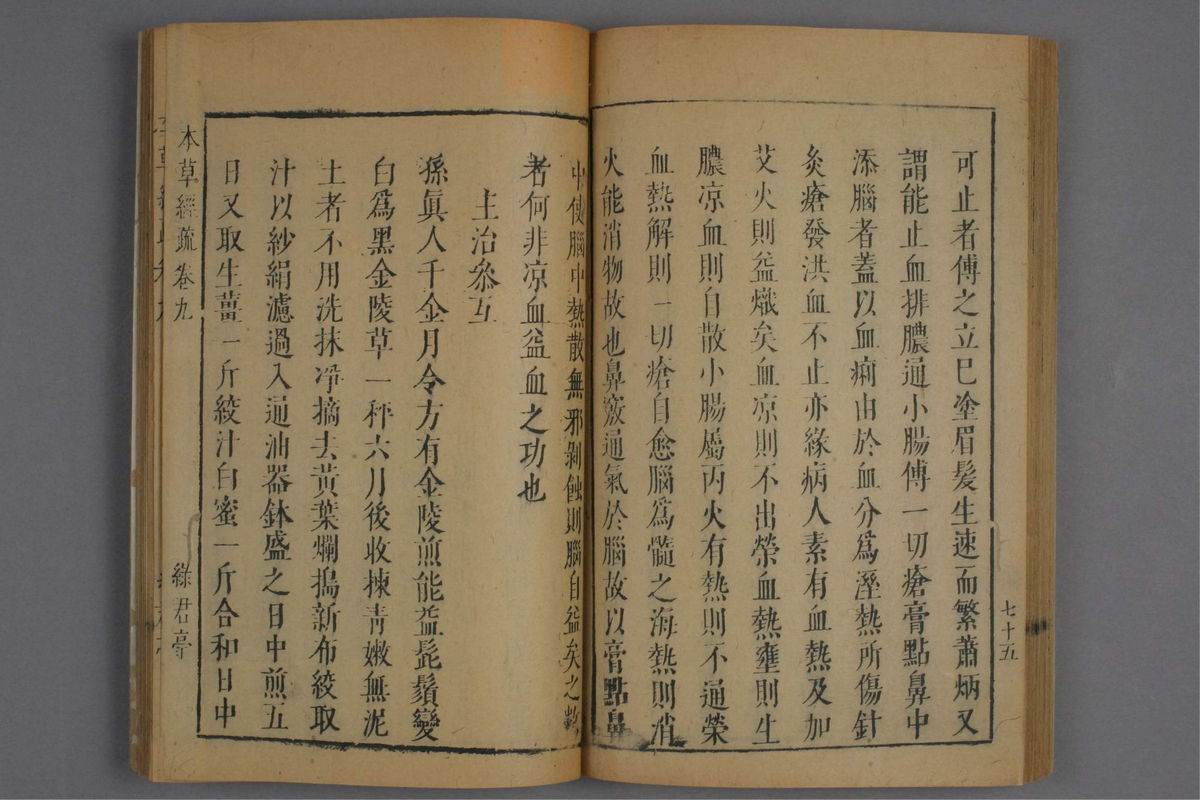 可止者傅之立巳塗眉髮生速而繁蕭炳又
謂能止血排膿通小腸傅一切瘡膏點鼻中
添腦者葢以血痢由於血分爲溼熱所傷針
灸瘡發洪血不止亦緣病人素有血熱及加
艾火則益熾矣血凉則不出榮血熱壅則生
膿凉血則自散小腸屬丙火有熱則不通榮
血熱解則一切瘡自愈腦爲髓之海熱則消
火能消物故也鼻竅通氣於腦故以膏點鼻
七十五
中使腦中熱散無邪剝蝕則腦自益矣之數
者何非凉血益血之功也
主治叅互
孫眞人千金月令方有金陵煎能益髭鬚變
白爲黑金陵草一秤六月後收揀青嫩無泥
土者不用洗抹凈摘去黃葉爛搗新布絞取
汁以紗絹濾過入通油器鉢盛之日中煎五
日又取生薑一斤絞汁白蜜一斤合和日中
本草經疏 卷九 綠君亭